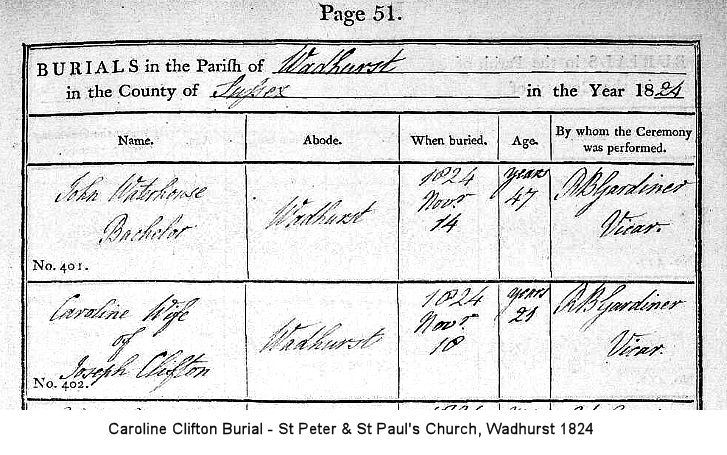 Page 51.
BURIALS in the Parish of Wadhurst
in the County of Sussex in the Year 1824
Name. Abode. When buried. Age. By whom the Ceremony was performed.
John Waterhouse
Bachelor
No. 401.
Wadhurst
1824
Novr.
14
years
47
R B Gardiner
Vicar.
Caroline Wife
of
Joseph Clifton
No. 402.
Wadhurst
1824
Novr.
18
years
21
R B Gardiner
Vicar.
Caroline Clifton Burial - St Peter & St Paul's Church, Wadhurst 1824